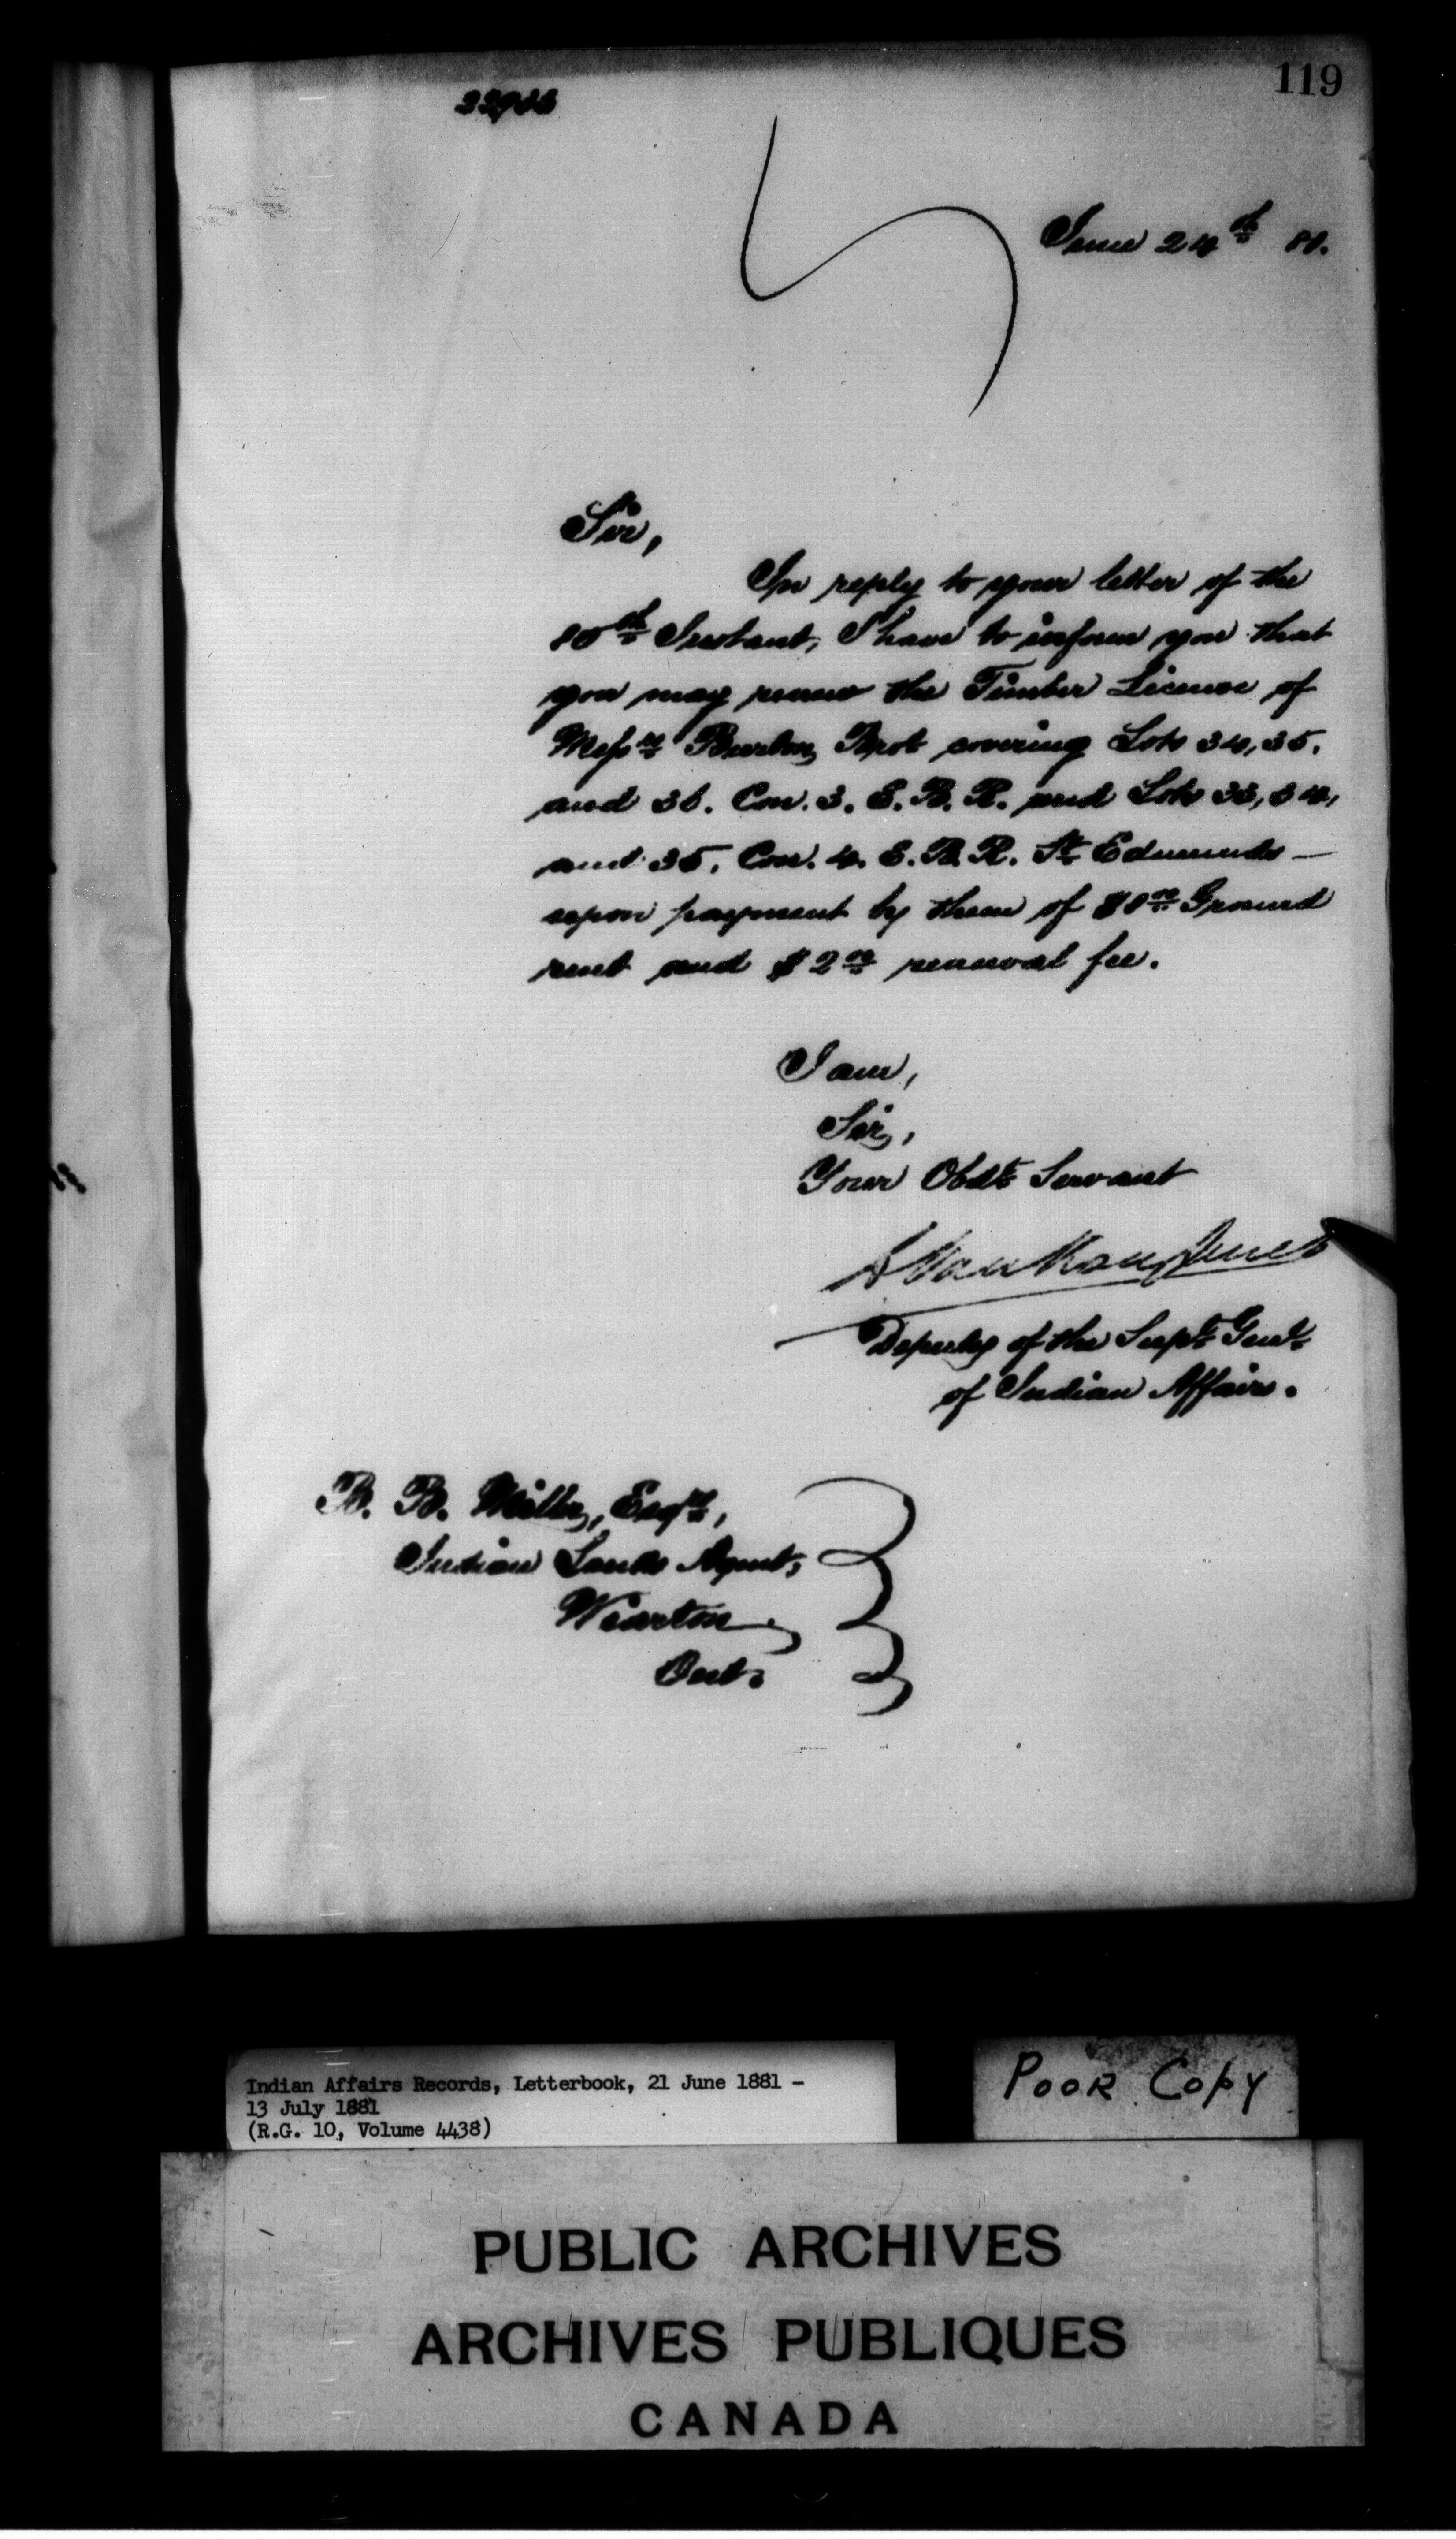 119
June 24th 81.
Sir,
In reply to your letter of the
10th Instant, I have to inform you that
you may renew the Timber License of
Messrs Burton Bro covering Lots 34, 35,
and 36. Con. 3. E. B. R. and Lots 33, 34,
and 35, Con. 4. E. B. R. St Edmunds —
upon payment by them of Ground
rent and $2 00 renewal fee.
I am,
Sir,
Your Obdt Servant
L VanKoughnet
Deputy of the Supt Genl
of Indian Affairs.
B. B. Miller, Esqre,
Indian Lands Agent,
Wiarton
Ont.
Indian Affairs Records, Letterbook, 21 June 1881 -
13 July 1881
(R.G. 10, Volume 4438)
POOR COPY
PUBLIC ARCHIVES
ARCHIVES PUBLIQUES
CANADA